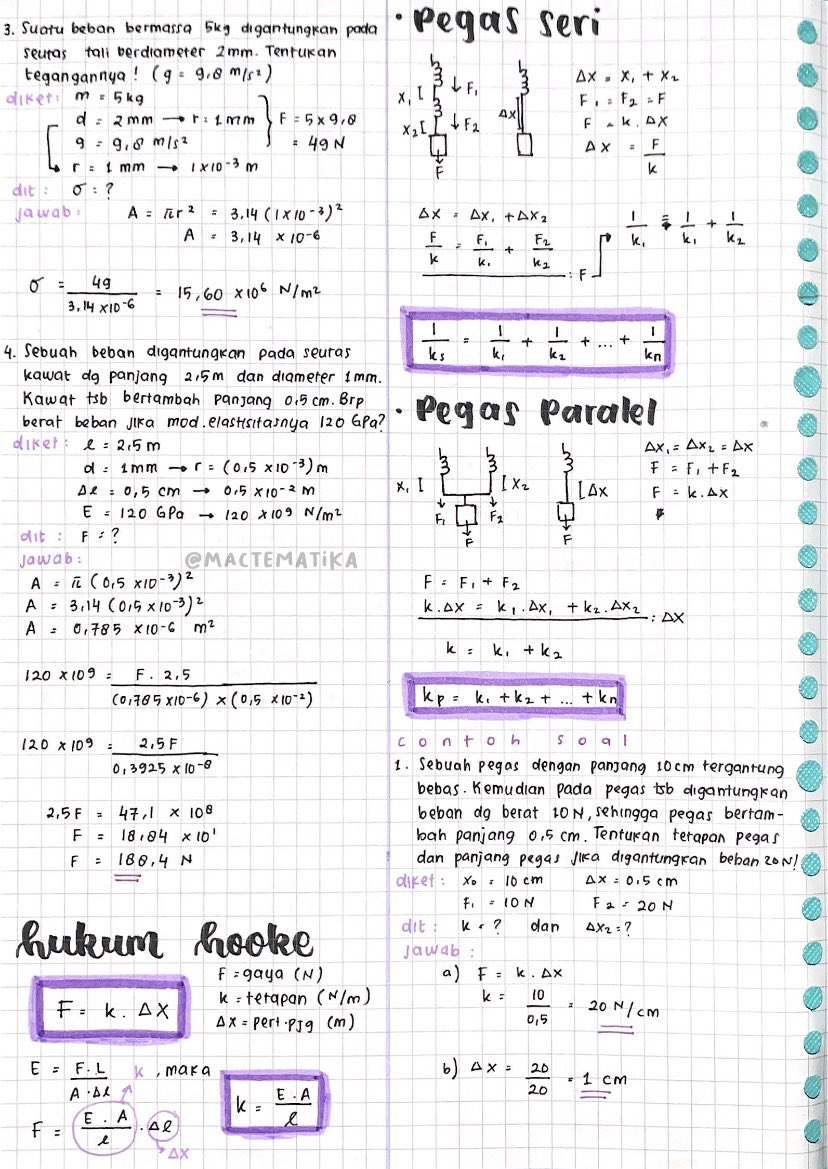 3. Suatu beban bermassa 5kg digantungkan pada
seutas tali berdiameter 2mm. Tentukan
tegangannya! (g = 9,8 m/s²)
diket: m = 5kg
d = 2mm → r = 1mm
g = 9,8 m/s²
r = 1 mm → 1x10⁻³ m
F = 5 x 9,8
= 49 N
dit : σ = ?
jawab: A = πr² = 3,14 (1x10⁻³)²
A = 3,14 x 10⁻⁶
σ = 49 / 3,14 x10⁻⁶ = 15,60 x10⁶ N/m²
4. Sebuah beban digantungkan pada seutas
kawat dg panjang 2,5m dan diameter 1mm.
Kawat tsb bertambah panjang 0,5 cm. Brp
berat beban jika mod.elastisitasnya 120 GPa?
diket : ℓ = 2,5 m
d = 1mm → r = (0,5 x10⁻³)m
Δℓ = 0,5 cm → 0,5 x10⁻² m
E = 120 GPa → 120 x10⁹ N/m²
dit : F = ?
@MACTEMATiKA
jawab :
A = π (0,5 x10⁻³)²
A = 3,14 (0,5 x10⁻³)²
A = 0,785 x10⁻⁶ m²
120 x10⁹ = F . 2,5 / (0,785 x10⁻⁶) x (0,5 x10⁻²)
120 x10⁹ = 2,5 F / 0,3925 x10⁻⁸
2,5F = 47,1 x 10⁸
F = 18,84 x10¹
F = 188,4 N
hukum hooke
F = k . ΔX
F = gaya (N)
k = tetapan (N/m)
ΔX = pert.pjg (m)
E = F.L / A.Δℓ
k , maka
F = E . A / ℓ . Δℓ
ΔX
k = E . A / ℓ
• Pegas seri
X₁ F₁
X₂ F₂
F
ΔX
ΔX = X₁ + X₂
F₁ = F₂ = F
F = k . ΔX
ΔX = F / k
ΔX = ΔX₁ + ΔX₂
F / k = F₁ / k₁ + F₂ / k₂ : F
1 / k₁ = 1 / k₁ + 1 / k₂
1 / ks = 1 / k₁ + 1 / k₂ + ... + 1 / kn
• Pegas Paralel
X₁ X₂ ΔX
F₁ F₂
F F
ΔX₁ = ΔX₂ = ΔX
F = F₁ + F₂
F = k . ΔX
F = F₁ + F₂
k.ΔX = k₁.ΔX₁ + k₂.ΔX₂ : ΔX
k = k₁ + k₂
kp = k₁ + k₂ + ... + kn
contoh soal
1. Sebuah pegas dengan panjang 10cm tergantung
bebas. Kemudian pada pegas tsb digantungkan
beban dg berat 10N, sehingga pegas bertam-
bah panjang 0,5 cm. Tentukan tetapan pegas
dan panjang pegas jika digantungkan beban 20N!
diket : X₀ = 10 cm ΔX = 0,5 cm
F₁ = 10N F₂ = 20 N
dit : k = ? dan ΔX₂ = ?
jawab :
a) F = k . ΔX
k = 10 / 0,5 = 20 N/cm
b) ΔX = 20 / 20 = 1 cm